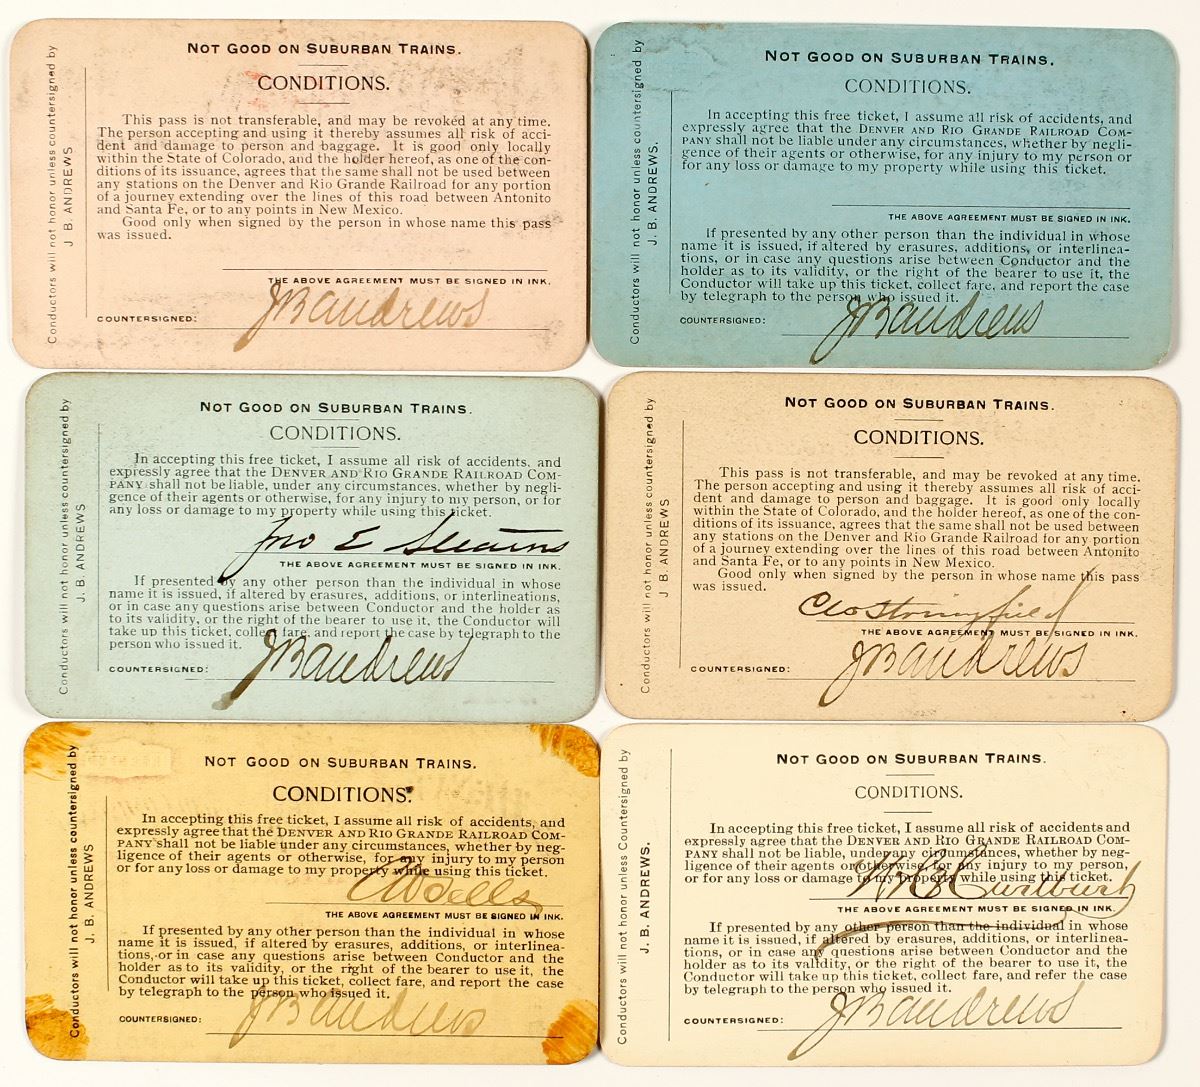 Conductors will not honor unless countersigned by
J. B. ANDREWS
NOT GOOD ON SUBURBAN TRAINS.
CONDITIONS.
This pass is not transferable, and may be revoked at any time.
The person accepting and using it thereby assumes all risk of acci-
dent and damage to person and baggage. It is good only locally
within the State of Colorado, and the holder hereof, as one of the con-
ditions of its issuance, agrees that the same shall not be used between
any stations on the Denver and Rio Grande Railroad for any portion
of a journey extending over the lines of this road between Antonito
and Santa Fe, or to any points in New Mexico.
Good only when signed by the person in whose name this pass
was issued.
THE ABOVE AGREEMENT MUST BE SIGNED IN INK.
COUNTERSIGNED: JB Andrews
Conductors will not honor unless countersigned by
J. B. ANDREWS.
NOT GOOD ON SUBURBAN TRAINS.
CONDITIONS.
In accepting this free ticket, I assume all risk of accidents, and
expressly agree that the DENVER AND RIO GRANDE RAILROAD COM-
PANY shall not be liable under any circumstances, whether by negli-
gence of their agents or otherwise, for any injury to my person or
for any loss or damage to my property while using this ticket.
THE ABOVE AGREEMENT MUST BE SIGNED IN INK.
If presented by any other person than the individual in whose
name it is issued, if altered by erasures, additions, or interlinea-
tions, or in case any questions arise between Conductor and the
holder as to its validity, or the right of the bearer to use it, the
Conductor will take up this ticket, collect fare, and report the case
by telegraph to the person who issued it.
COUNTERSIGNED: JB Andrews
Conductors will not honor unless countersigned by
J. B. ANDREWS
NOT GOOD ON SUBURBAN TRAINS.
CONDITIONS.
In accepting this free ticket, I assume all risk of accidents, and
expressly agree that the DENVER AND RIO GRANDE RAILROAD COM-
PANY shall not be liable, under any circumstances, whether by negli-
gence of their agents or otherwise, for any injury to my person, or for
any loss or damage to my property while using this ticket.
Jno E Stearns
THE ABOVE AGREEMENT MUST BE SIGNED IN INK.
If presented by any other person than the individual in whose
name it is issued, if altered by erasures, additions, or interlineations,
or in case any questions arise between Conductor and the holder as
to its validity, or the right of the bearer to use it, the Conductor will
take up this ticket, collect fare, and report the case by telegraph to the
person who issued it.
COUNTERSIGNED: JB Andrews
Conductors will not honor unless countersigned by
J. B. ANDREWS
NOT GOOD ON SUBURBAN TRAINS.
CONDITIONS.
This pass is not transferable, and may be revoked at any time.
The person accepting and using it thereby assumes all risk of acci-
dent and damage to person and baggage. It is good only locally
within the State of Colorado, and the holder hereof, as one of the con-
ditions of its issuance, agrees that the same shall not be used between
any stations on the Denver and Rio Grande Railroad for any portion
of a journey extending over the lines of this road between Antonito
and Santa Fe, or to any points in New Mexico.
Good only when signed by the person in whose name this pass
was issued.
Stringfield
THE ABOVE AGREEMENT MUST BE SIGNED IN INK.
COUNTERSIGNED: JB Andrews
Conductors will not honor unless countersigned by
J. B. ANDREWS
NOT GOOD ON SUBURBAN TRAINS.
CONDITIONS.
In accepting this free ticket, I assume all risk of accidents, and
expressly agree that the DENVER AND RIO GRANDE RAILROAD COM-
PANY shall not be liable under any circumstances, whether by neg-
ligence of their agents or otherwise, for any injury to my person
or for any loss or damage to my property while using this ticket.
Wells
THE ABOVE AGREEMENT MUST BE SIGNED IN INK.
If presented by any other person than the individual in whose
name it is issued, if altered by erasures, additions, or interlinea-
tions, or in case any questions arise between Conductor and the
holder as to its validity, or the right of the bearer to use it, the
Conductor will take up this ticket, collect fare, and report the case
by telegraph to the person who issued it.
COUNTERSIGNED: JB Andrews
Conductors will not honor unless Countersigned by
J. B. ANDREWS.
NOT GOOD ON SUBURBAN TRAINS.
CONDITIONS.
In accepting this free ticket, I assume all risk of accidents and
expressly agree that the DENVER AND RIO GRANDE RAILROAD COM-
PANY shall not be liable, under any circumstances, whether by neg-
ligence of their agents or otherwise, for any injury to my person,
or for any loss or damage to my property while using this ticket.
THE ABOVE AGREEMENT MUST BE SIGNED IN INK.
If presented by any other person than the individual in whose
name it is issued, if altered by erasures, additions, or interlinea-
tions, or in case any questions arise between Conductor and the
holder as to its validity, or the right of the bearer to use it, the
Conductor will take up this ticket, collect fare, and refer the case
by telegraph to the person who issued it.
COUNTERSIGNED: JB Andrews